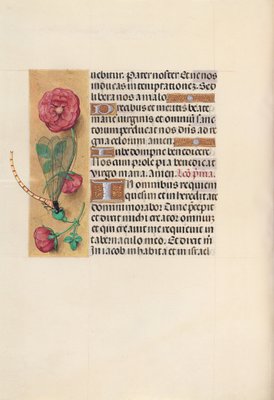 ucbitur. Pater noster Et ne nos
inducas in temptationez. Sed
libera nos a malo
Precibus et meritis beate
marie virginis et omniuz san
ctorum perducat nos dñs ad re
gna celorum amen.
Iube dompne benedicere
Nos cum prole pia benedicat
virgo maria. Amen. Lco pma.
IN omnibus requiem
quesiui et in heredita te
domini morabor Tunc precepit
et dixit michi creator omniuz
et qui creauit me requieuit in ta
bernaculo meo. Et dixit m̄
In iacob inhabita et in israel